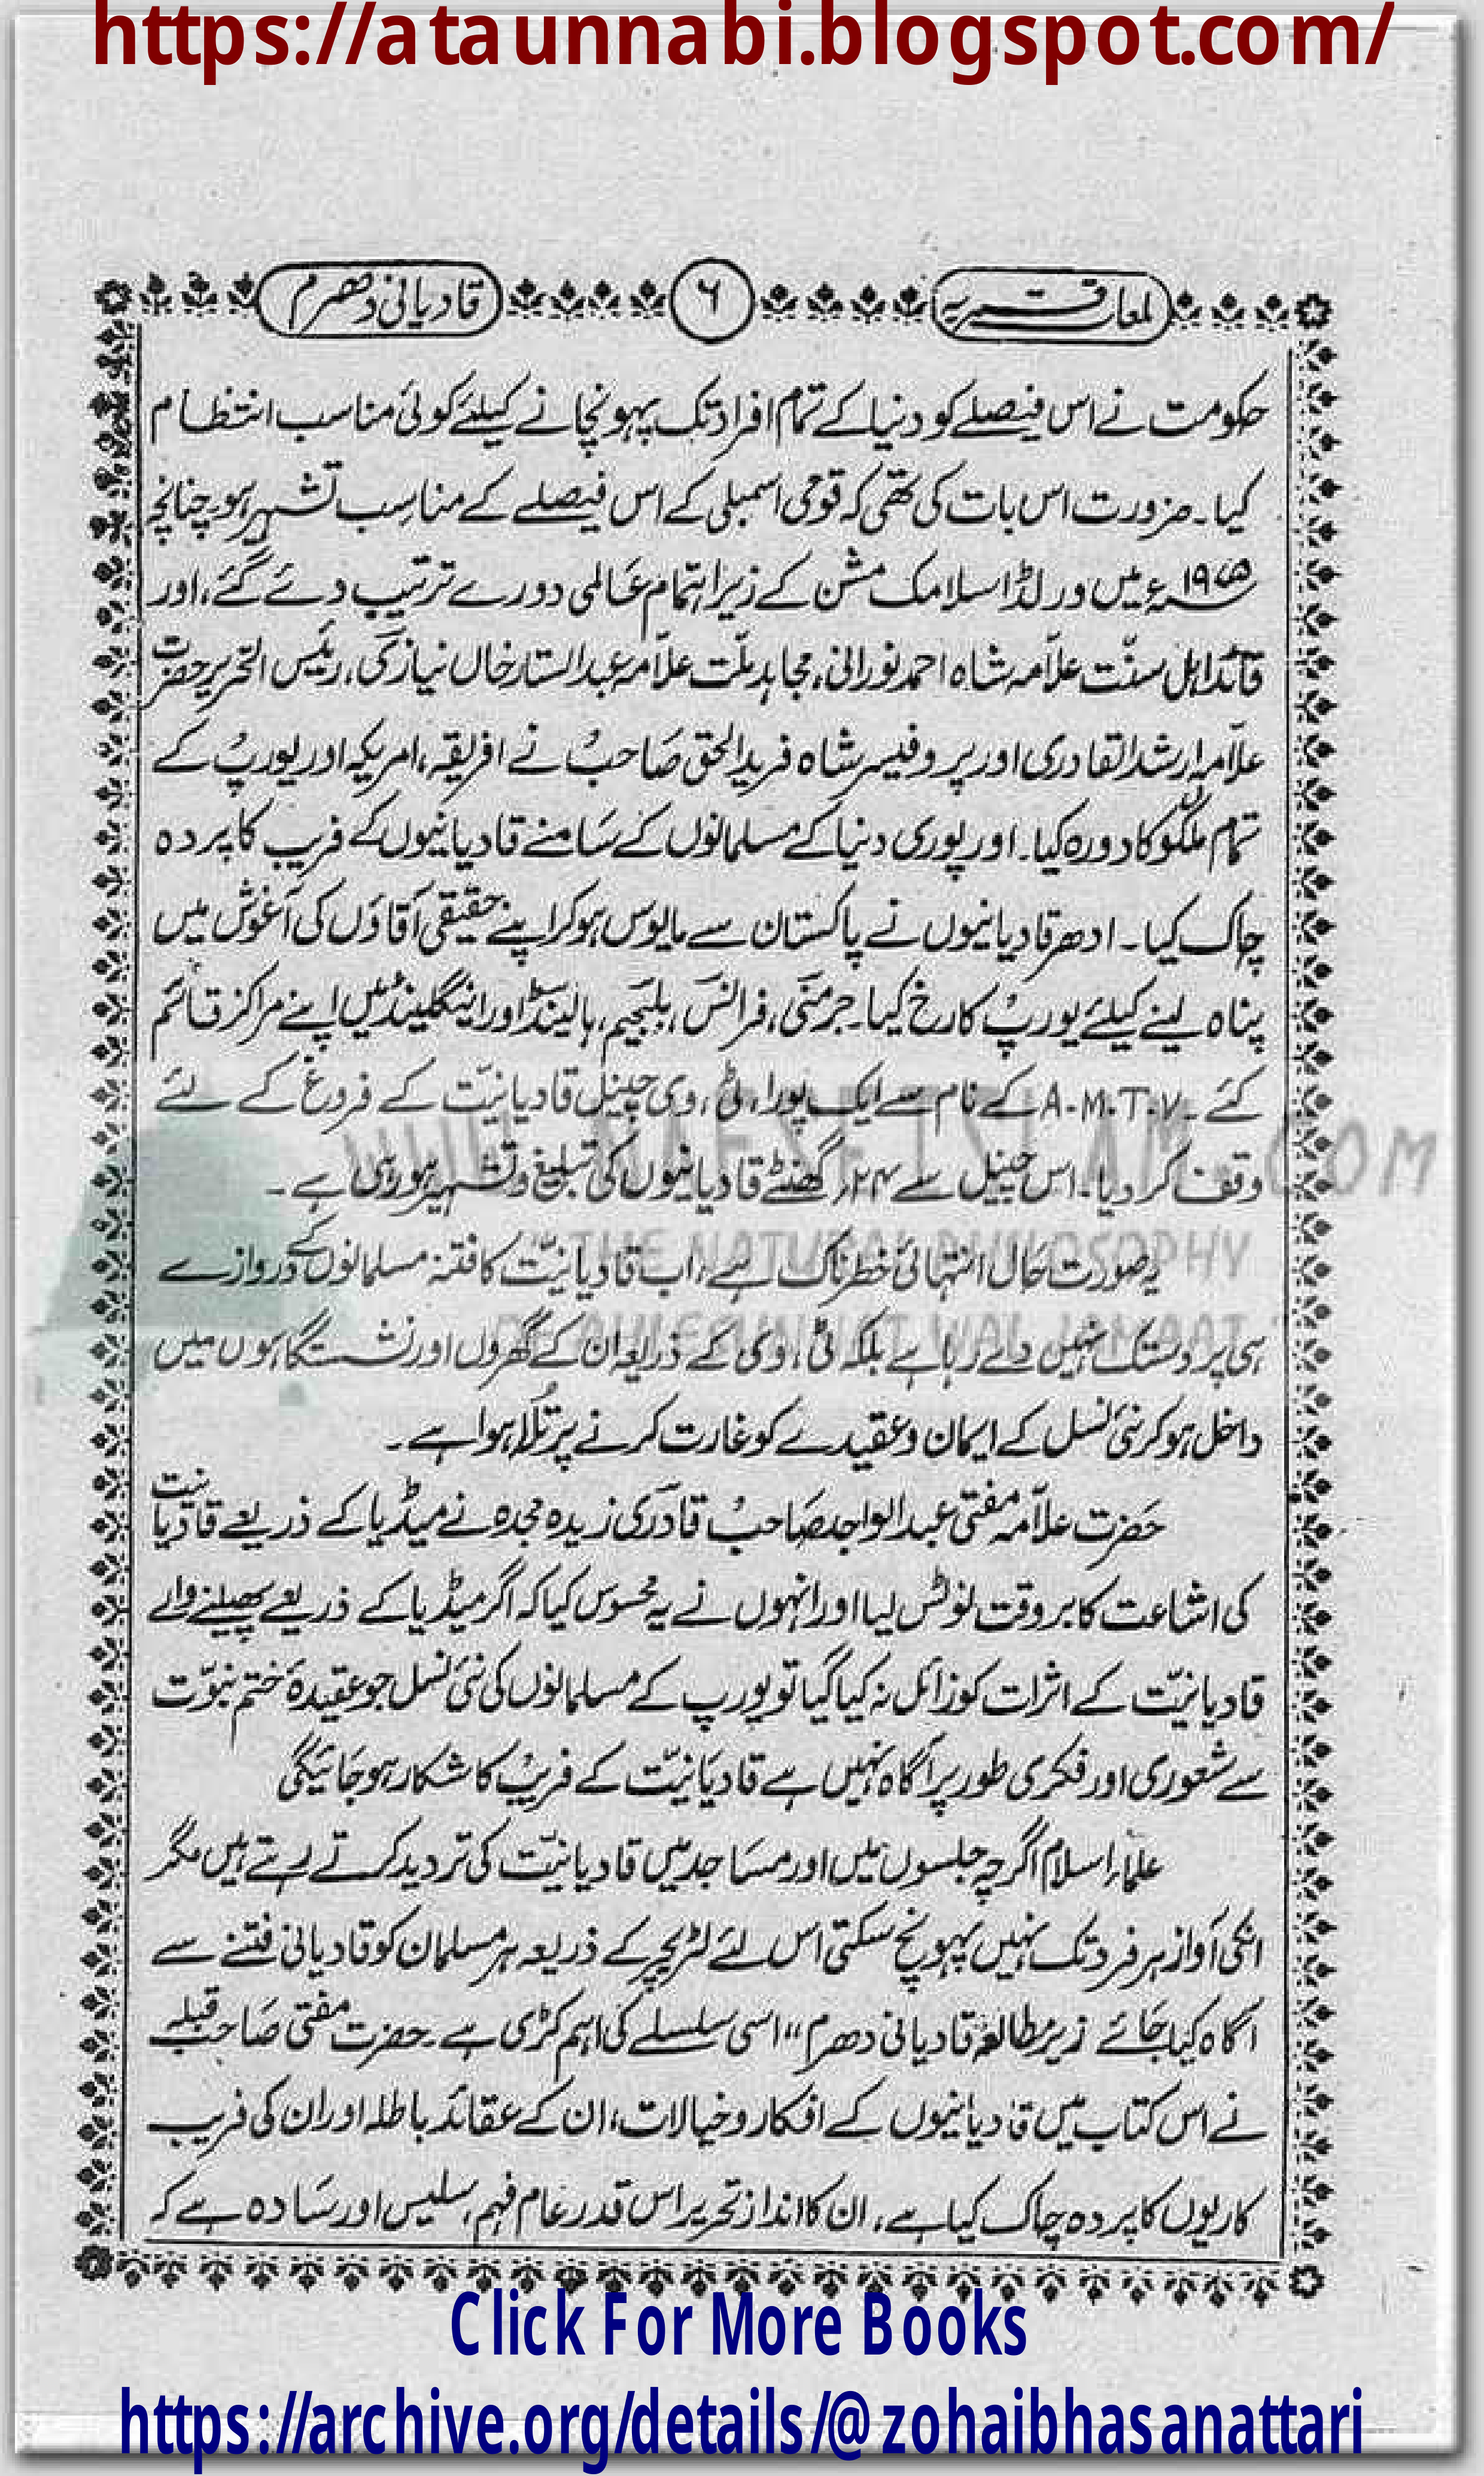 https://ataunnabi.blogspot.com/
لمعات قمریہ ۶ قادیانی دھرم
حکومت نے اس فیصلے کو دنیا کے تمام افراد تک پہونچانے کیلئے کوئی مناسب انتظام
کیا۔ ضرورت اس بات کی تھی کہ قومی اسمبلی کے اس فیصلے کے مناسِب تشہیر ہو۔ چنانچہ
۱۹۷۵ء میں ورلڈ اسلامک مشن کے زیر اہتمام عَالمی دورے ترتیب دئے گئے، اور
قائد اہل سنّت علاّمہ شاہ احمد نورانی، مجاہد ملّت علاّمہ عبدالستار خاں نیازی، رئیس التحریر حضرت
علاّمہ ارشد القادری اور پروفیسر شاہ فرید الحق صَاحبُ نے افریقہ، امریکہ اور یورپُ کے
تمام ملکوں کا دورہ کیا۔ اور پوری دنیا کے مسلمانوں کے سَامنے قادیانیوں کے فریب کا پردہ
چاک کیا۔ ادھر قادیانیوں نے پاکستان سے مایوس ہو کر اپنے حقیقی آقاؤں کی آغوش میں
پناہ لینے کیلئے یورپُ کا رخ کیا۔ جرمنی، فرانس، بلجیم، ہالینڈ اور انگلینڈ میں اپنے مراکز قائم
کئے۔ A.M.T.V کے نام سے ایک پورا، ٹی، وی چینل قادیانیّت کے فروغ کے لئے
وقف کر دیا۔ اس چینل سے ۲۴؍ گھنٹے قادیانیوں کی تبلیغ و تشہیر ہو رہی ہے۔
یہ صورت حَال انتہائی خطرناک ہے، اب قادیانیّت کا فتنہ مسلمانوں کے دروازے
ہی پر دستک نہیں دے رہا ہے بلکہ ٹی، وی کے ذریعہ ان کے گھروں اور نشستگاہوں میں
داخل ہو کر نئی نسل کے ایمان و عقیدے کو غارت کرنے پر تُلا ہوا ہے۔
حَضرت علاّمہ مفتی عبدالواجد صَاحبُ قادری زیدہ مجدہ نے میڈیا کے ذریعے قادیانیت
کی اشاعت کا بر وقت نوٹس لیا اور انہوں نے یہ محسوس کیا کہ اگر میڈیا کے ذریعے پھیلنے والے
قادیانیّت کے اثرات کو زائل نہ کیا گیا تو یورپ کے مسلمانوں کی نئی نسل جو عقیدۂ ختم نبوّت
سے شعوری اور فکری طور پر آگاہ نہیں ہے قادیَانیّت کے فریبُ کا شکار ہو جَائیگی
علماء اسلام اگرچہ جلسوں میں اور مسَاجد میں قادیانیّت کی تردید کرتے رہتے ہیں مگر
انکی آواز ہر فرد تک نہیں پہونچ سکتی اس لئے لٹریچر کے ذریعہ ہر مسلمان کو قادیانی فتنے سے
آگاہ کیا جَائے زیر مطالعہ قادیانی دھرم“ اسی سلسلے کی اہم کڑی ہے۔ حضرت مفتی صَاحب قبلہ
نے اس کتاب میں قادیانیوں کے افکار و خیالات، ان کے عقائد باطلہ اور ان کی فریب
کاریوں کا پردہ چاک کیا ہے، ان کا انداز تحریر اس قدر عَام فہم، سلیس اور سَادہ ہے کہ
Click For More Books
https://archive.org/details/@zohaibhasanattari